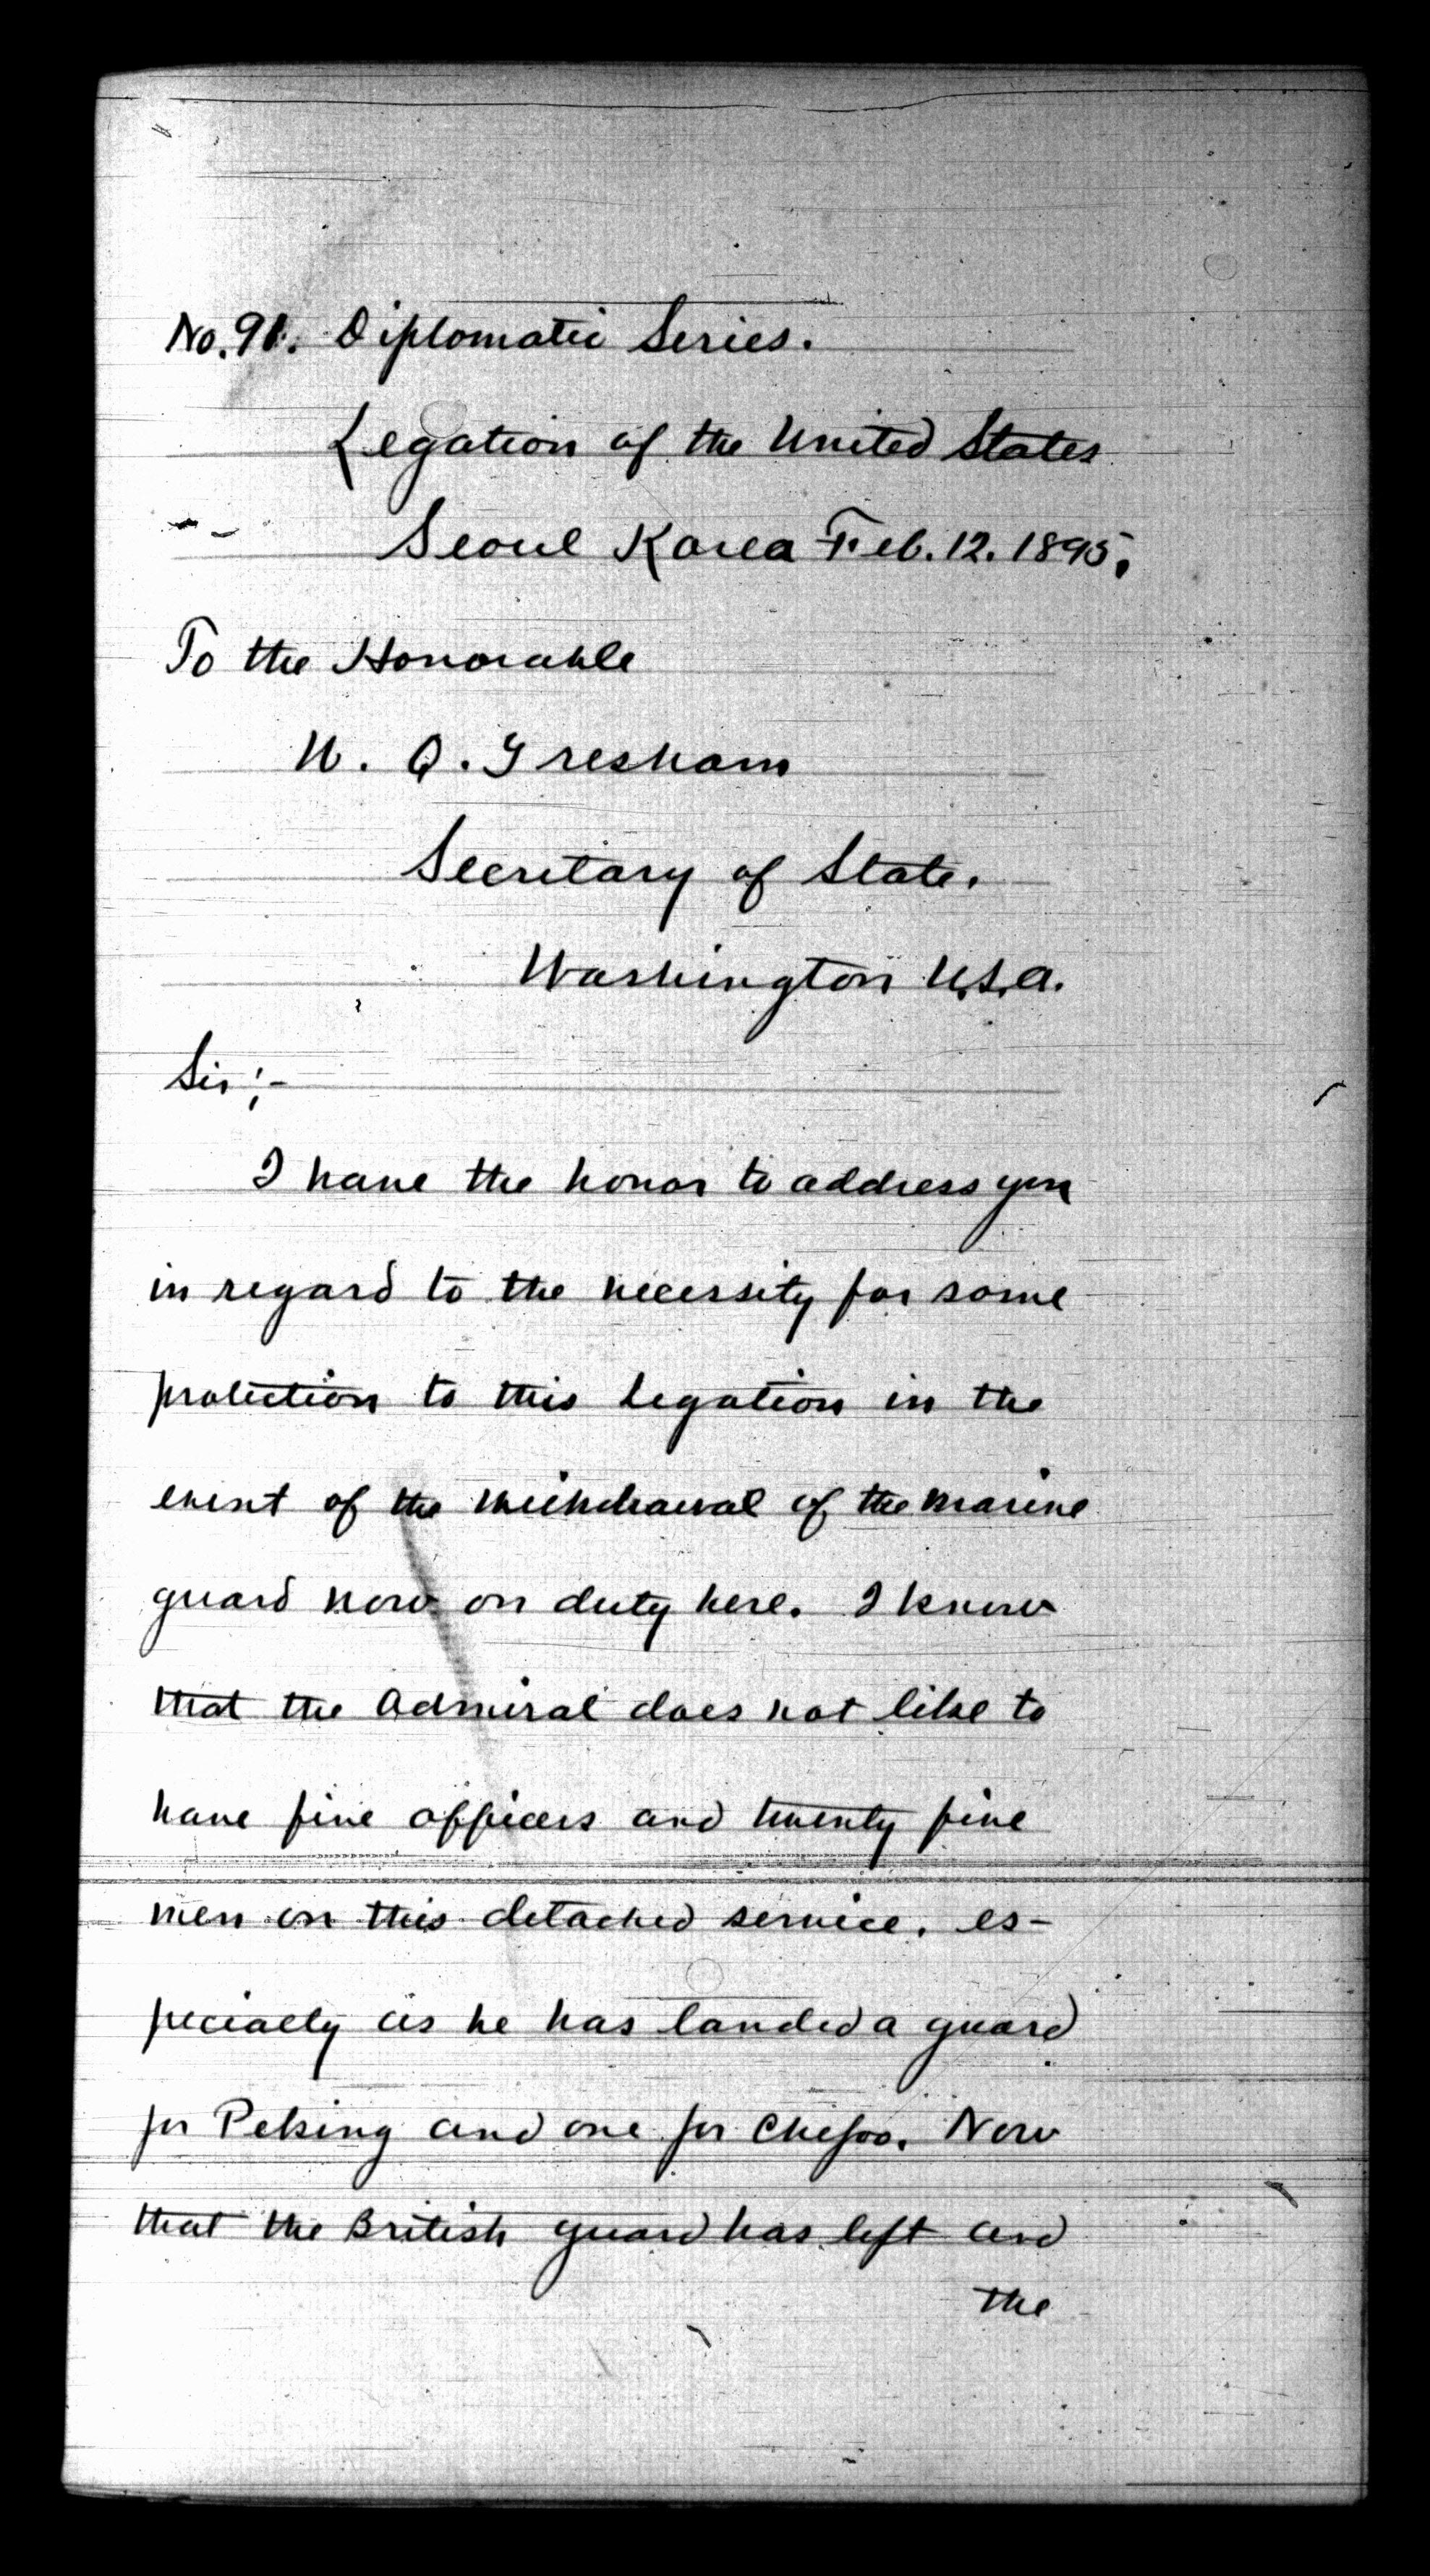 No. 91. Diplomatic Series.
Legation of the United States
Seoul Korea Feb. 12. 1895.
To the Honorable
W. Q. Gresham
Secretary of State.
Washington U.S.A.
Sir;-
I have the honor to address you
in regard to the necessity for some
protection to this Legation in the
event of the withdrawal of the marine
guard now on duty here. I know
that the Admiral does not like to
have five officers and twenty five
men on this detached service, es-
pecially as he has landed a guard
for Peking and one for Chefoo. Now
that the British guard has left and
the